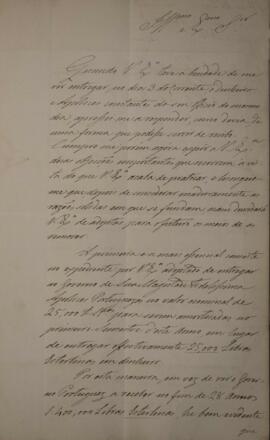 Illmo e Exmo Snr
Quando V. Exa teve a bondade de me
vir entregar, no dia 3 do corrente, o dinheiro
e Apolices constantes do seu officio da mesma
data, apressei-me a responder, como devia, de
uma forma que podesse servir de recibo.
Cumpre-me porem agora expôr a V. Exa
duas objecções importantes que occorrem á vis-
ta do que V. Exa acaba de practicar, e lisongeio-
me que depois de considerar maduramente as
razões solidas em que se fundam, não duvidará
V. Exa de adoptar para o futuro o meio de as
remover.
A primeira e a mais essencial consiste
no expediente por V. Exa adoptado de entregar
ao Governo de Sua Magestade Fidelissima
Apolices Portuguezas no valor nominal de
25,000 £ para serem amortizadas no
primeiro Semestre d'este Anno, em lugar
de entregar effectivamente 25,000 Libras
Esterlinas em dinheiro.
Por esta maneira, em vez de vir o Gover-
no Portuguez a receber no fim de 28 Annos
1:400,000 Libras Esterlinas, he bem evidente
que